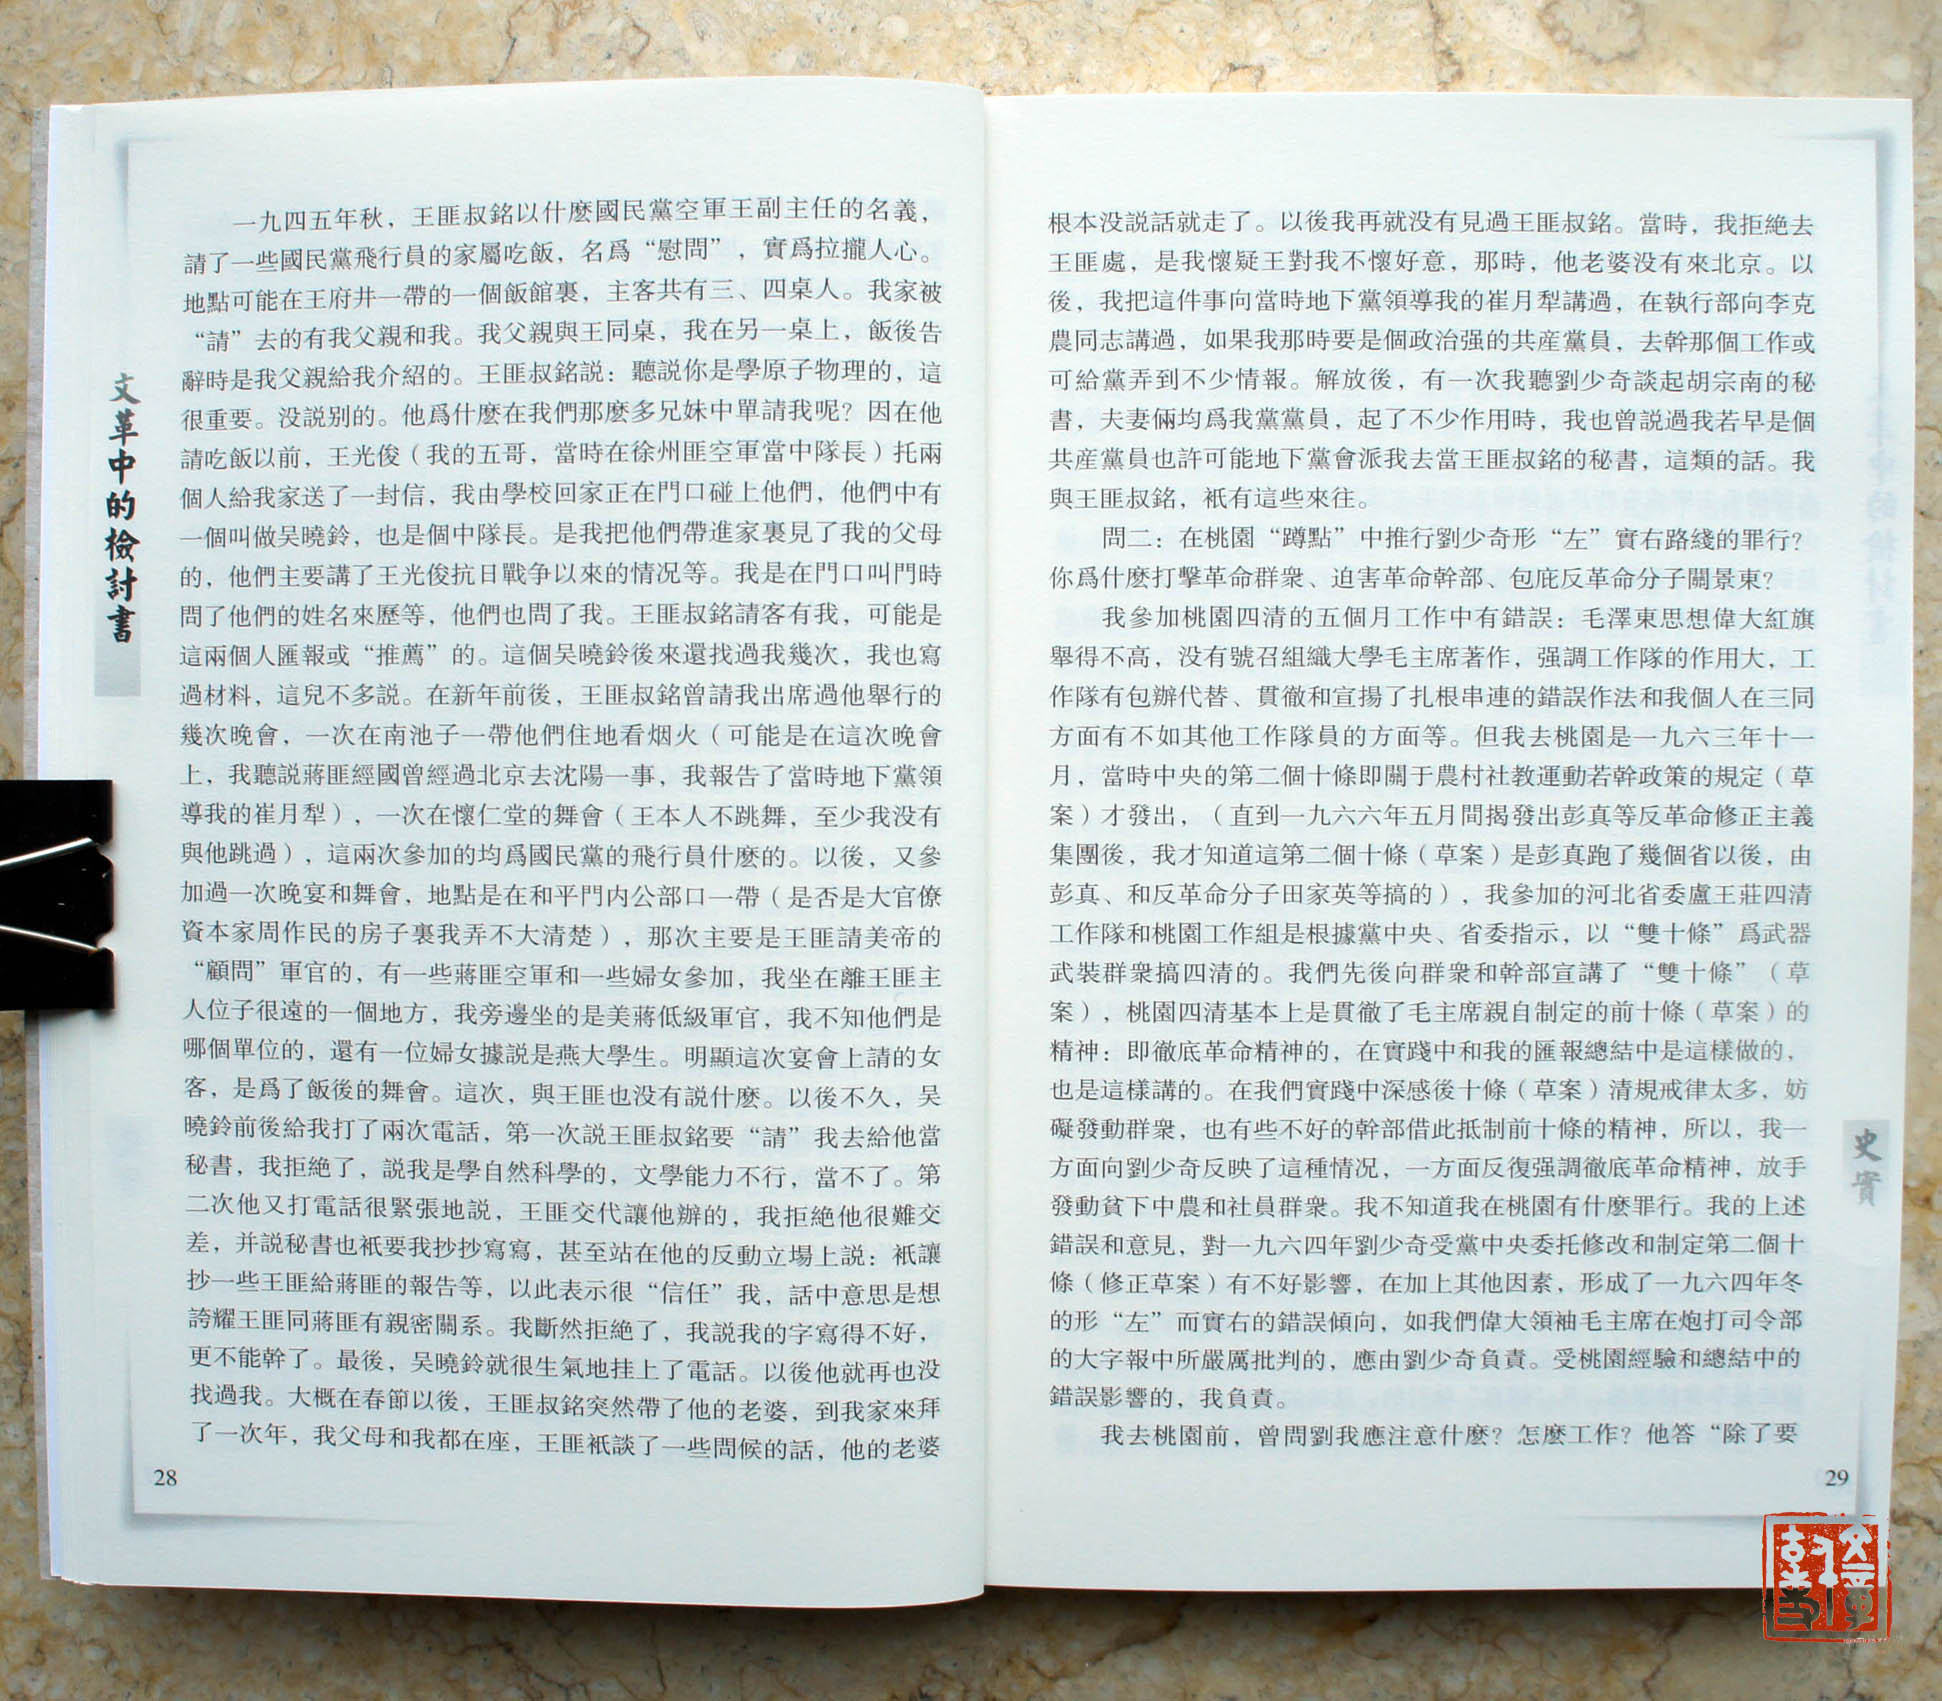 文革中的檢討書
一九四五年秋，王匪叔銘以什麽國民黨空軍王副主任的名義，
請了一些國民黨飛行員的家屬吃飯，名爲“慰問”，實爲拉攏人心。
地點可能在王府井一帶的一個飯館裏，主客共有三、四桌人。我家被
“請”去的有我父親和我。我父親與王同桌，我在另一桌上，飯後告
辭時是我父親給我介紹的。王匪叔銘説：聽説你是學原子物理的，這
很重要。没説别的。他爲什麽在我們那麽多兄妹中單請我呢？因在他
請吃飯以前，王光俊（我的五哥，當時在徐州匪空軍當中隊長）托兩
個人給我家送了一封信，我由學校回家正在門口碰上他們，他們中有
一個叫做吴曉鈴，也是個中隊長。是我把他們帶進家裏見了我的父母
的，他們主要講了王光俊抗日戰争以來的情况等。我是在門口叫門時
問了他們的姓名來歷等，他們也問了我。王匪叔銘請客有我，可能是
這兩個人匯報或“推薦”的。這個吴曉鈴後來還找過我幾次，我也寫
過材料，這兒不多説。在新年前後，王匪叔銘曾請我出席過他舉行的
幾次晚會，一次在南池子一帶他們住地看烟火（可能是在這次晚會
上，我聽説蔣匪經國曾經過北京去沈陽一事，我報告了當時地下黨領
導我的崔月犁），一次在懷仁堂的舞會（王本人不跳舞，至少我没有
與他跳過），這兩次參加的均爲國民黨的飛行員什麽的。以後，又參
加過一次晚宴和舞會，地點是在和平門内公部口一帶（是否是大官僚
資本家周作民的房子裏我弄不大清楚），那次主要是王匪請美帝的
“顧問”軍官的，有一些蔣匪空軍和一些婦女參加，我坐在離王匪主
人位子很遠的一個地方，我旁邊坐的是美蔣低級軍官，我不知他們是
哪個單位的，還有一位婦女據説是燕大學生。明顯這次宴會上請的女
客，是爲了飯後的舞會。這次，與王匪也没有説什麽。以後不久，吴
曉鈴前後給我打了兩次電話，第一次説王匪叔銘要“請”我去給他當
秘書，我拒絶了，説我是學自然科學的，文學能力不行，當不了。第
二次他又打電話很緊張地説，王匪交代讓他辦的，我拒絶他很難交
差，并説秘書也衹要我抄抄寫寫，甚至站在他的反動立場上説：衹讓
抄一些王匪給蔣匪的報告等，以此表示很“信任”我，話中意思是想
誇耀王匪同蔣匪有親密關系。我斷然拒絶了，我説我的字寫得不好，
更不能幹了。最後，吴曉鈴就很生氣地挂上了電話。以後他就再也没
找過我。大概在春節以後，王匪叔銘突然帶了他的老婆，到我家來拜
了一次年，我父母和我都在座，王匪衹談了一些問候的話，他的老婆
28
根本没説話就走了。以後我再就没有見過王匪叔銘。當時，我拒絶去
王匪處，是我懷疑王對我不懷好意，那時，他老婆没有來北京。以
後，我把這件事向當時地下黨領導我的崔月犁講過，在執行部向李克
農同志講過，如果我那時要是個政治强的共産黨員，去幹那個工作或
可給黨弄到不少情報。解放後，有一次我聽劉少奇談起胡宗南的秘
書，夫妻倆均爲我黨黨員，起了不少作用時，我也曾説過我若早是個
共産黨員也許可能地下黨會派我去當王匪叔銘的秘書，這類的話。我
與王匪叔銘，衹有這些來往。
問二：在桃園“蹲點”中推行劉少奇形“左”實右路綫的罪行？
你爲什麽打擊革命群衆、迫害革命幹部、包庇反革命分子關景東？
我參加桃園四清的五個月工作中有錯誤：毛澤東思想偉大紅旗
舉得不高，没有號召組織大學毛主席著作，强調工作隊的作用大，工
作隊有包辦代替、貫徹和宣揚了扎根串連的錯誤作法和我個人在三同
方面有不如其他工作隊員的方面等。但我去桃園是一九六三年十一
月，當時中央的第二個十條即關于農村社教運動若幹政策的規定（草
案）才發出，（直到一九六六年五月間揭發出彭真等反革命修正主義
集團後，我才知道這第二個十條（草案）是彭真跑了幾個省以後，由
彭真、和反革命分子田家英等搞的），我參加的河北省委盧王莊四清
工作隊和桃園工作組是根據黨中央、省委指示，以“雙十條”爲武器
武裝群衆搞四清的。我們先後向群衆和幹部宣講了“雙十條”（草
案），桃園四清基本上是貫徹了毛主席親自制定的前十條（草案）的
精神：即徹底革命精神的，在實踐中和我的匯報總結中是這樣做的，
也是這樣講的。在我們實踐中深感後十條（草案）清規戒律太多，妨
礙發動群衆，也有些不好的幹部借此抵制前十條的精神，所以，我一
方面向劉少奇反映了這種情况，一方面反復强調徹底革命精神，放手
發動貧下中農和社員群衆。我不知道我在桃園有什麽罪行。我的上述
錯誤和意見，對一九六四年劉少奇受黨中央委托修改和制定第二個十
條（修正草案）有不好影響，在加上其他因素，形成了一九六四年冬
的形“左”而實右的錯誤傾向，如我們偉大領袖毛主席在炮打司令部
的大字報中所嚴厲批判的，應由劉少奇負責。受桃園經驗和總結中的
錯誤影響的，我負責。
我去桃園前，曾問劉我應注意什麽？怎麽工作？他答“除了要
史實
29